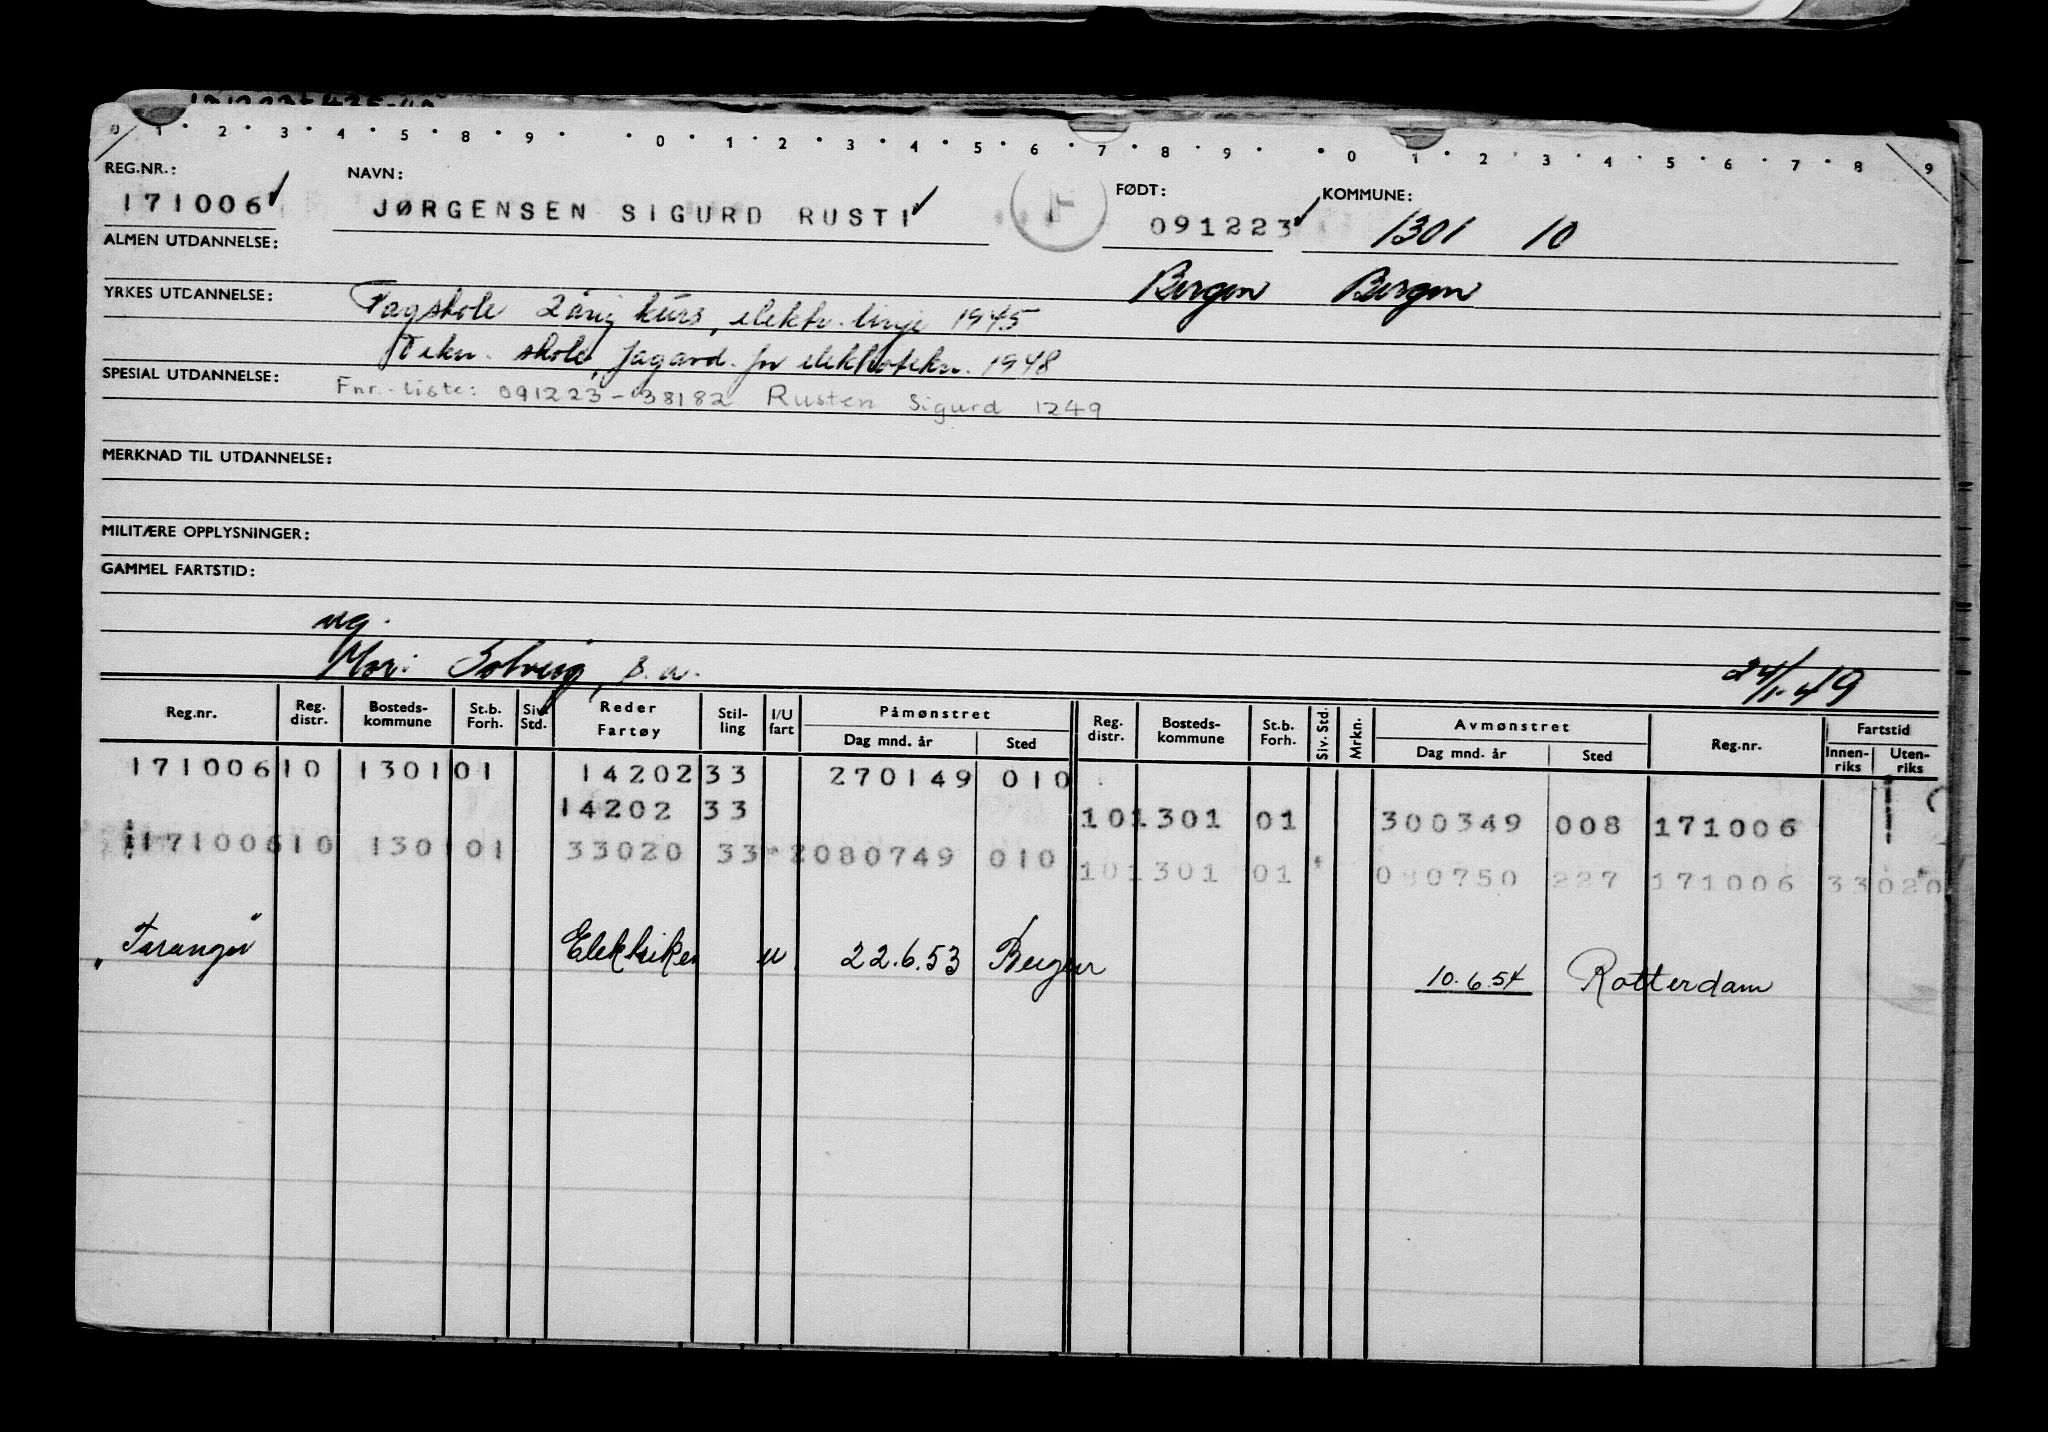 0 1 2 3 4 5 8 9 0 1 2 3 4 5 6 7 8 9 0 1 2 3 4 5 6 7 8 9
REG.NR.: NAVN: FØDT: KOMMUNE:
171006 JØRGENSEN SIGURD RUSTI 091223 1301 10
ALMEN UTDANNELSE:
Bergen Bergen
YRKES UTDANNELSE: Fagskole 2 årig kurs, elektr. linje 1945
Tekn. skole, fagavd. for elektrotekn. 1948
SPESIAL UTDANNELSE: Fnr.-liste: 091223-38182 Rusten Sigurd 1249
MERKNAD TIL UTDANNELSE:
MILITÆRE OPPLYSNINGER:
GAMMEL FARTSTID:
ug.
Mor: Solveig, s.a. 24/1-49
Reg.nr. Reg. distr. Bosteds-kommune St.b. Forh. Siv. Std. Reder Fartøy Stil-ling I/U fart Påmønstret Dag mnd. år Sted Reg. distr. Bosteds-kommune St.b. Forh. Siv. Std. Mrkn. Avmønstret Dag mnd. år Sted Reg.nr. Fartstid Innen-riks Uten-riks
171006 10 1301 01 14202 33 270149 010
14202 33 10 1301 01 300349 008 171006
171006 10 1301 01 33020 33 2 080749 010
10 1301 01 080750 227 171006 33020
"Taranger" Elektriker u 22.6.53 Bergen
10.6.54 Rotterdam